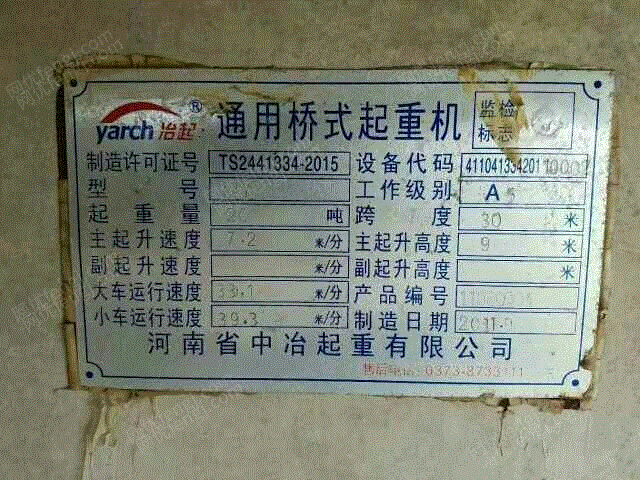 yarch 冶起 ®
通用桥式起重机
监检
标志
制造许可证号 TS2441334-2015 设备代码
型号 工作级别 A
起重量 吨 跨度 30 米
主起升速度 7.2 米/分 主起升高度 9 米
副起升速度 米/分 副起升高度 米
大车运行速度 米/分 产品编号
小车运行速度 39.3 米/分 制造日期 2011.
河南省中冶起重有限公司
售后电话: